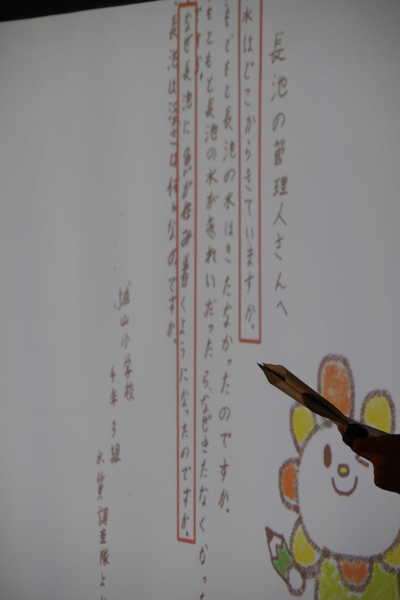 長池の管理人さんへ
水はどこからきていますか。
もともと長池の水はきたなかったのですか。
もともと長池の水がきれいだったら、なぜきたなくかった
なぜ長池に魚が住み着くようになったのですか。
長池は深さは何mなのですか。
山小学校
4年3組
水質調査隊より